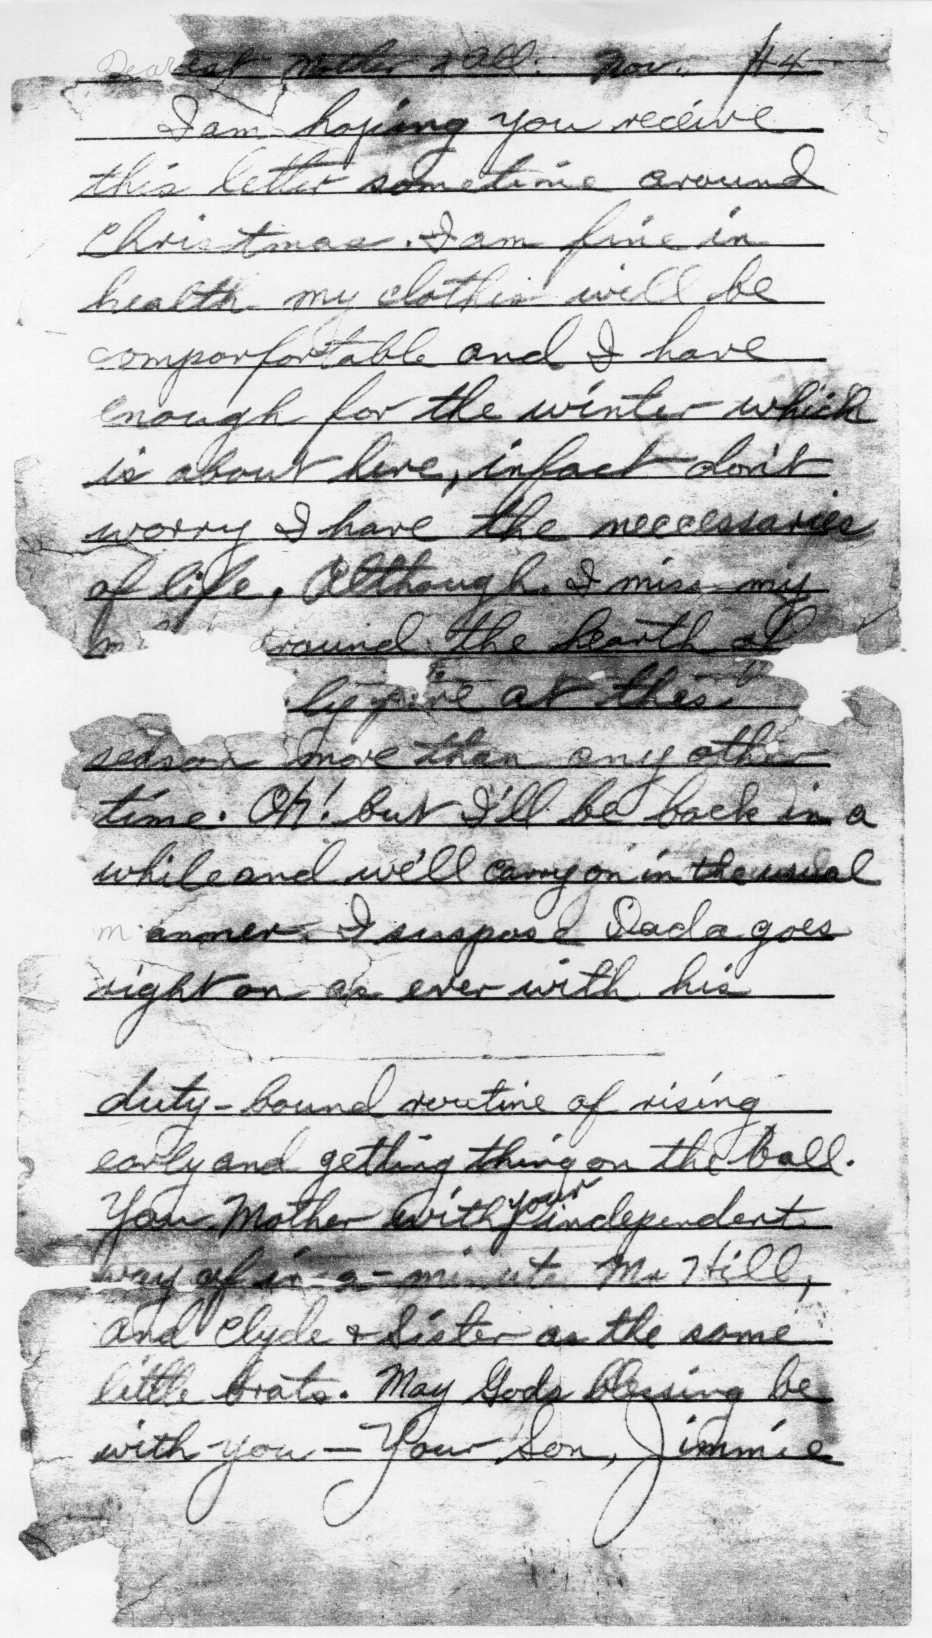 Dearest Mother & All. Nov. 44
I am hoping you receive
this letter sometime around
Christmas. I am fine in
health my clothes will be
comporfortable and I have
enough for the winter which
is about here, infact don't
worry I have the neccessaries
of life, Although I miss my
around the hearth
at this
season more than any other
time. Oh! but I'll be back in a
while and we'll carry on in the usual
manner. I suspose Dada goes
right on as ever with his
duty-bound routine of rising
early and getting thing on the ball.
You Mother with your independent
way of in-a-minute Mr Hill,
and Clyde & Sister as the same
little brats. May Gods blessing be
with you — Your Son, Jimmie